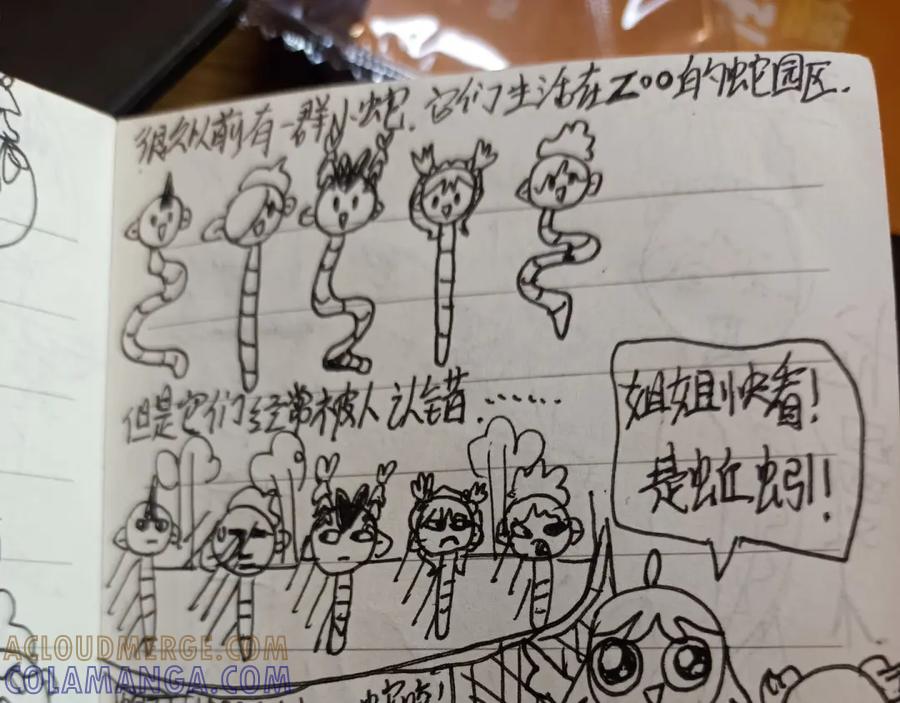 很久以前有一群小蛇.它们生活在Zoo的蛇园区.
但是它们经常被人认错.......
姐姐快看!
是蚯蚓!
ACLOUDMERGE.COM
COLAMANGA.COM